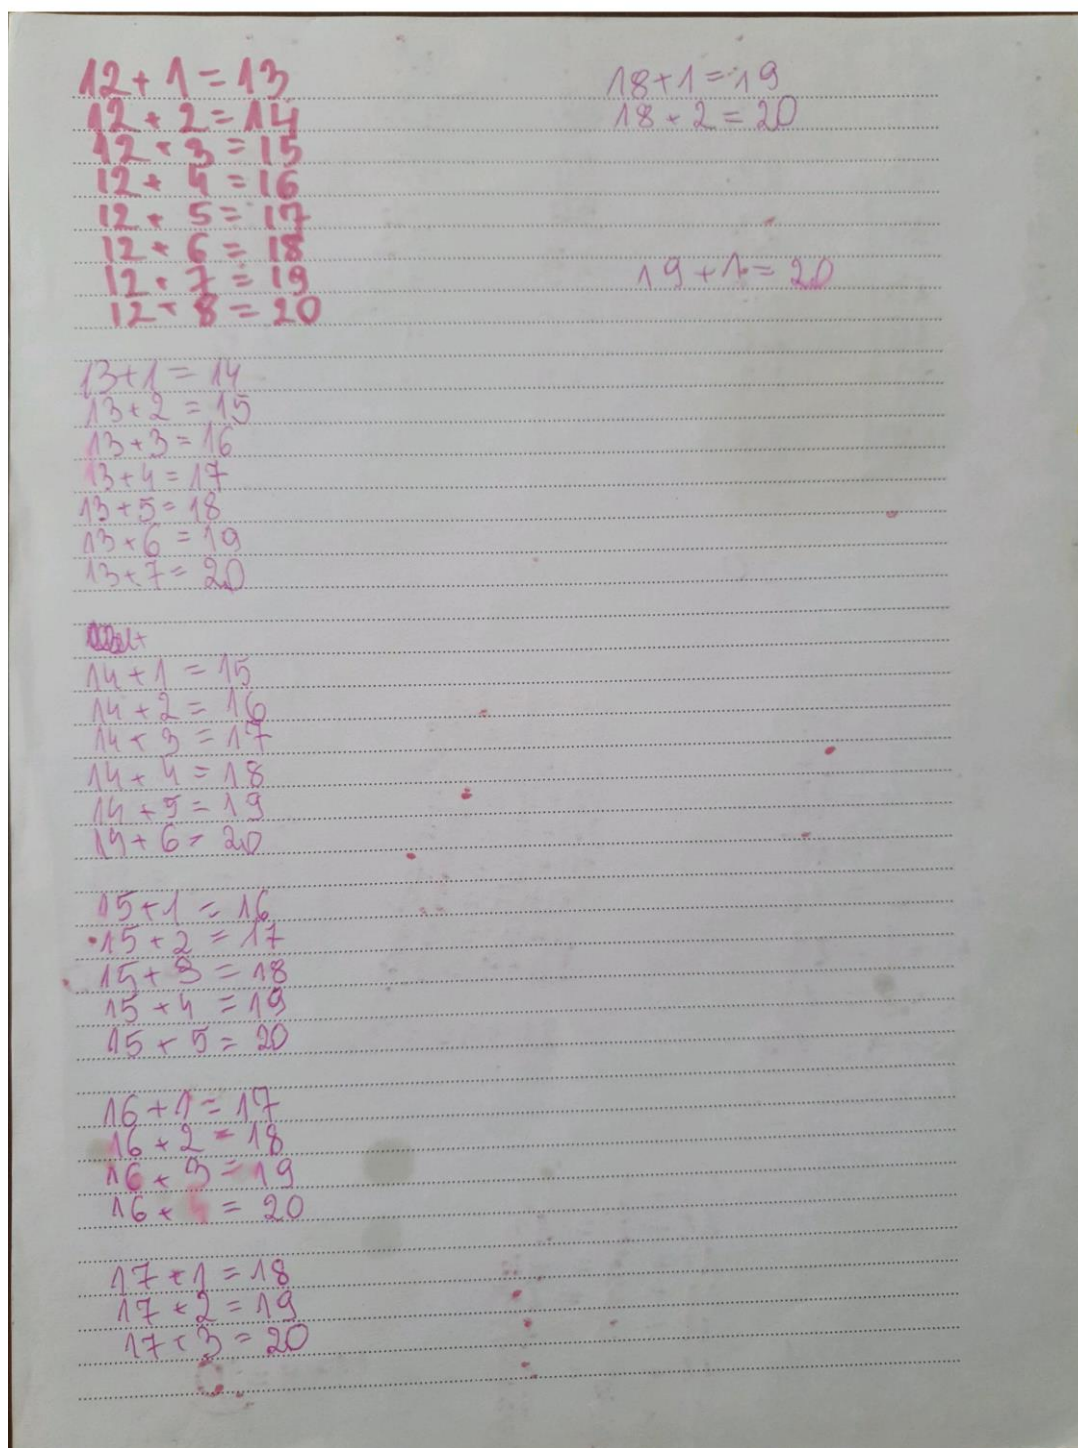 12 + 1 = 13
12 + 2 = 14
12 + 3 = 15
12 + 4 = 16
12 + 5 = 17
12 + 6 = 18
12 + 7 = 19
12 + 8 = 20
13 + 1 = 14
13 + 2 = 15
13 + 3 = 16
13 + 4 = 17
13 + 5 = 18
13 + 6 = 19
13 + 7 = 20
14 + 1 = 15
14 + 2 = 16
14 + 3 = 17
14 + 4 = 18
14 + 5 = 19
14 + 6 = 20
15 + 1 = 16
15 + 2 = 17
15 + 3 = 18
15 + 4 = 19
15 + 5 = 20
16 + 1 = 17
16 + 2 = 18
16 + 3 = 19
16 + 4 = 20
17 + 1 = 18
17 + 2 = 19
17 + 3 = 20
18 + 1 = 19
18 + 2 = 20
19 + 1 = 20